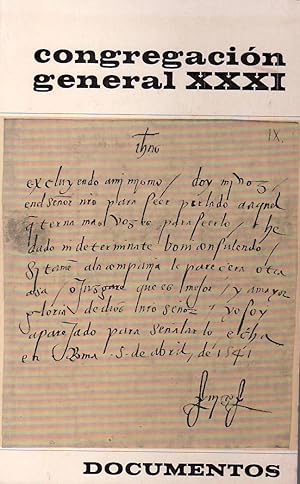 congregación
general XXXI
IX.
Jhus
excluyendo a mi mismo / doy mi voz /
en el señor nro para seer perlado a aquel
q terna mas vozes para serlo / he
dado indeterminate boni consulendo /
si tamen a la compañia le parecera otra
cosa / o juzgare que es mejor / y a mayor
gloria de dios nro señor / yo soy
aparejado para señalarlo echa
en Roma 5 de abril, de 1541
DOCUMENTOS